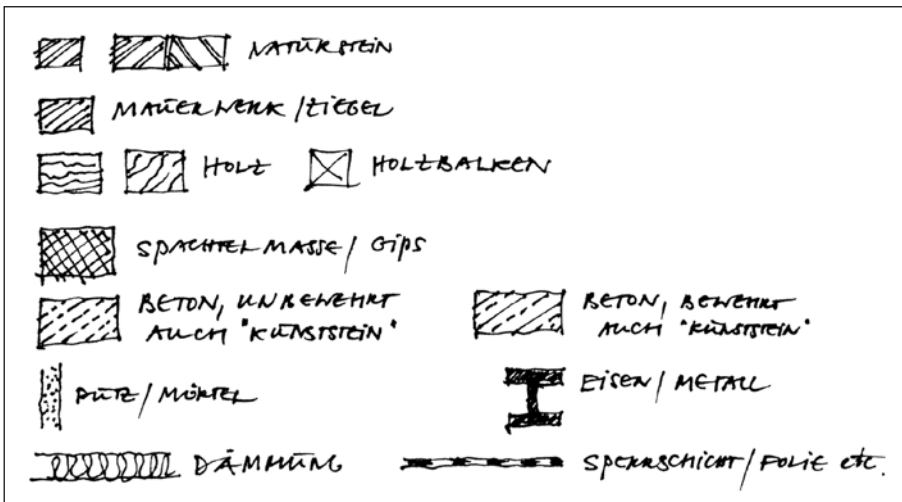 NATURSTEIN
MAUERWERK/ZIEGEL
HOLZ
HOLZBALKEN
SPACHTELMASSE/GIPS
BETON, UNBEWEHRT
AUCH "KUNSTSTEIN"
BETON, BEWEHRT
AUCH "KUNSTSTEIN"
PUTZ/MÖRTEL
EISEN/METALL
DÄMMUNG
SPERRSCHICHT/FOLIE etc.